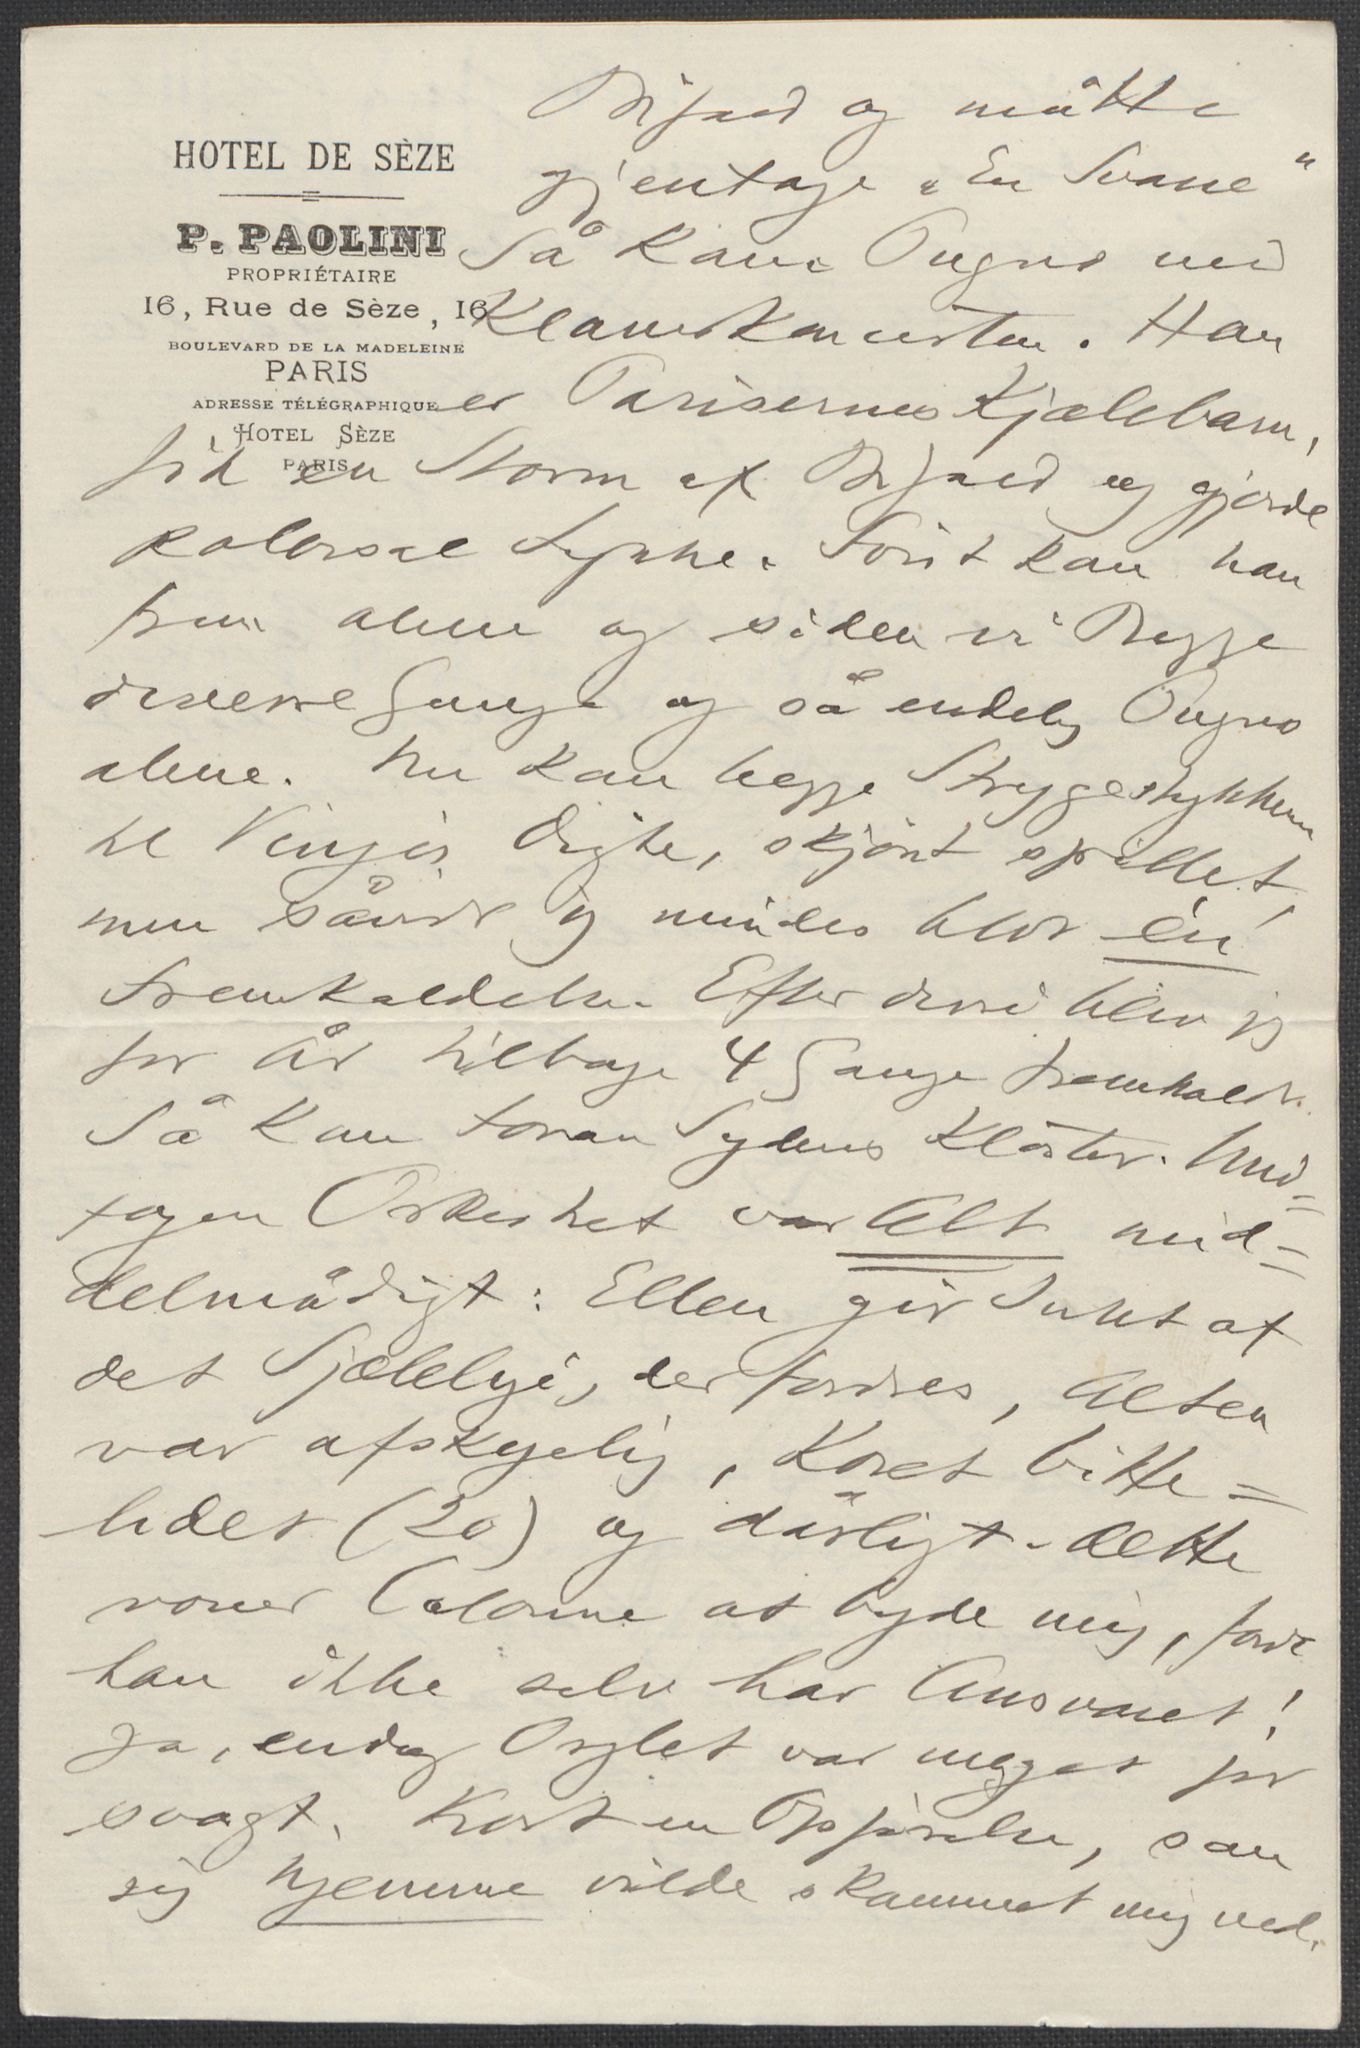 HOTEL DE SÈZE
P. PAOLINI
PROPRIÉTAIRE
16, Rue de Sèze, 16
BOULEVARD DE LA MADELEINE
PARIS
ADRESSE TÉLÉGRAPHIQUE
HOTEL SÈZE
PARIS
Bifald og måtte
gjentage „En Svane"
Så kom Pugno med
Klaverkoncerten. Han
er Parisernes Kjælebarn,
fik en Storm af Bifald og gjorde
kolossal Lykke. Først kom han
frem alene og siden vi Begge
diverse Gange og så endelig Pugno
alene. Nu kom begge Strygestykkerne
til Vinjes Digte, skjønt spillet,
men såvidt jeg mindes blot én
Fremkaldelse. Efter disse blev jeg
for År tilbage 4 Gange fremkaldt.
Så kom Foran Sydens Kloster. Und=
tagen Orkestret var Alt mid=
delmådigt: Ellen gir Intet af
det Sjælelige, der fordres, Alten
var afskyelig, Koret bitte=
lidet (20) og dårligt. Dette
vover Colonne at byde mig, fordi
han ikke selv har Ansvaret!
Ja, endog Orglet var meget for
svagt. Kort en Opførelse, som
jeg hjemme vilde skammet mig ved.